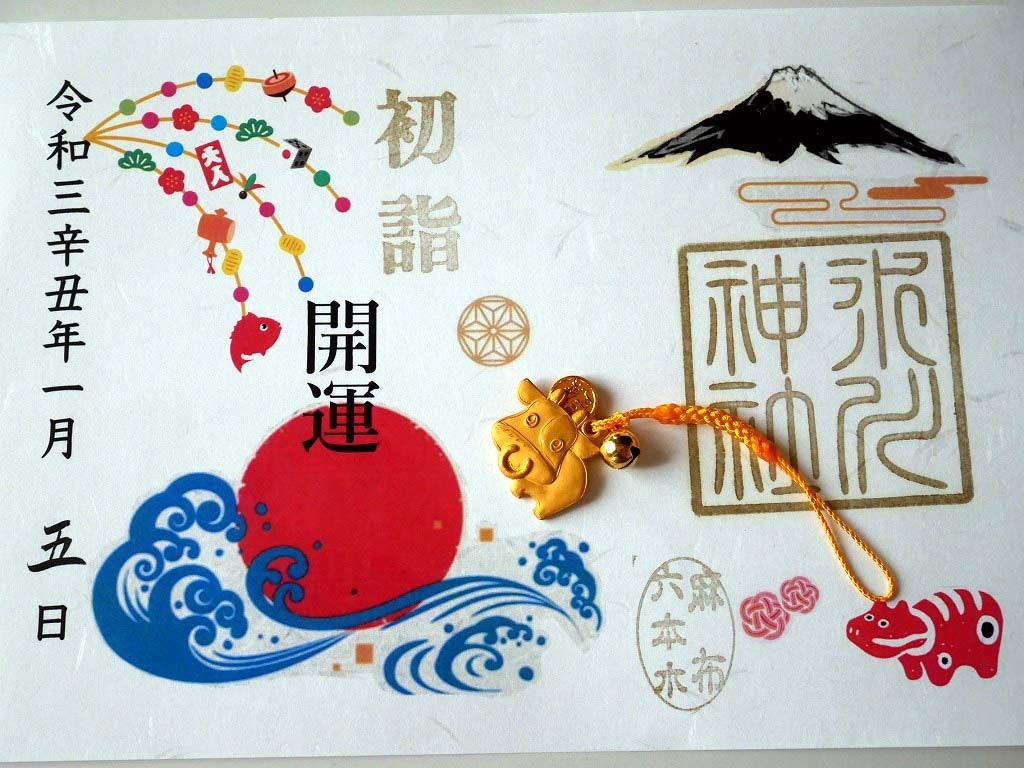 氷川
神社
麻布
六本木
初詣
開運
大入
令和三辛丑年一月 五日